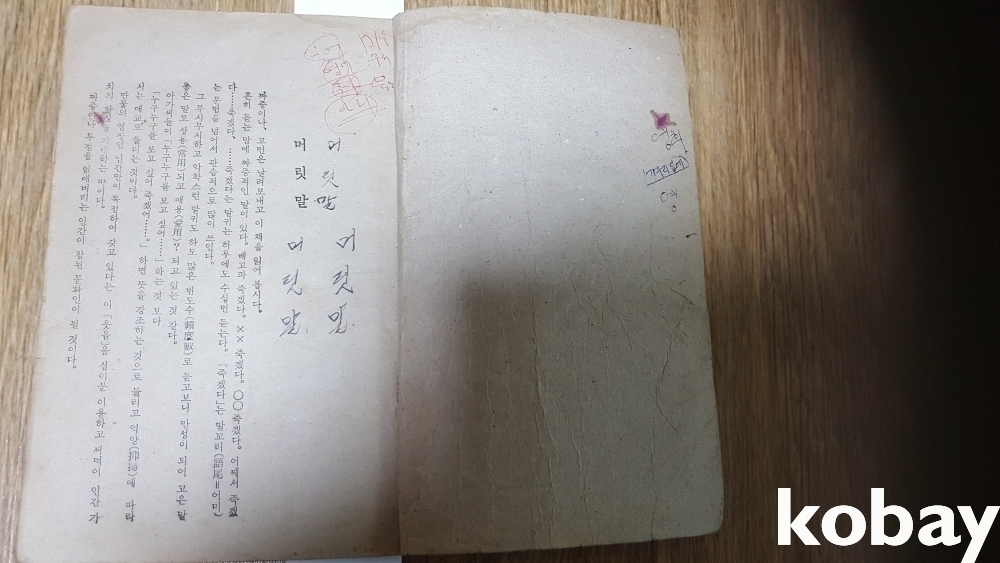 머릿말
머릿말
머릿말
머릿말
짜증이나, 고민은 날려보내고 이 책을 읽어 봅시다.
흔히 듣는 말에 짜증적인 말이 있다. 배고파 죽겠다. ×× 죽겠다. ○○ 죽겠다. 어쩨서 죽겠
다……죽겠다, ……죽겠다는 말귀는 하루에도 수십번 듣는다. 「죽겠다」는 말꼬리(語尾=어미)
는 문법을 넘어서 관습적으로 많이 쓰인다.
그 무시무시하고 악착스런 말귀도 하도 많은 빈도수(頻度數)로 듣고보니 만성이 되어 고은 말
좋은 말로 상용(常用)되고 애용(愛用)? 되고 있는 것 같다.
아가씨들이 「누구누구를 보고 싶어……」 하는 것 보다
「누구누구를 보고 싶어 죽겠어……。」 하면 뜻을 강조하는 것으로 들리고 억양(抑揚)에 따라
서는 애교로 들리는 것이다.
만물의 영장인 인간만이 독점하여 갖고 있다는 이 「웃음」을 십이분 이용하고 써먹어 인간 가
치의 를 하는 바이다.
짜증이나 투정을 잃에버리는 인간이 참된 문화인이 될 것이다.
kobay